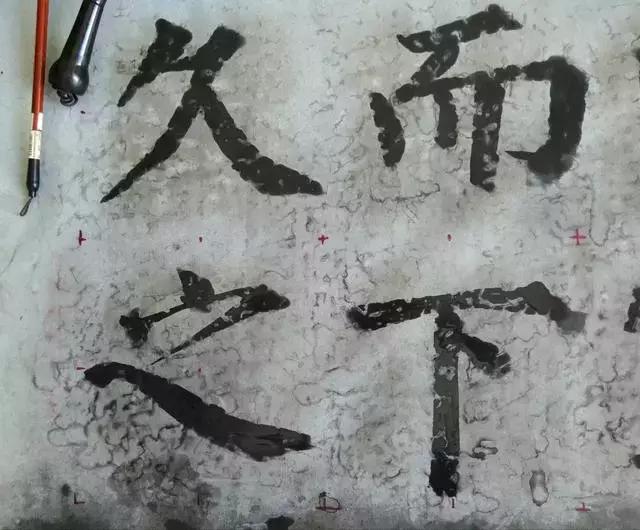 而下
久之